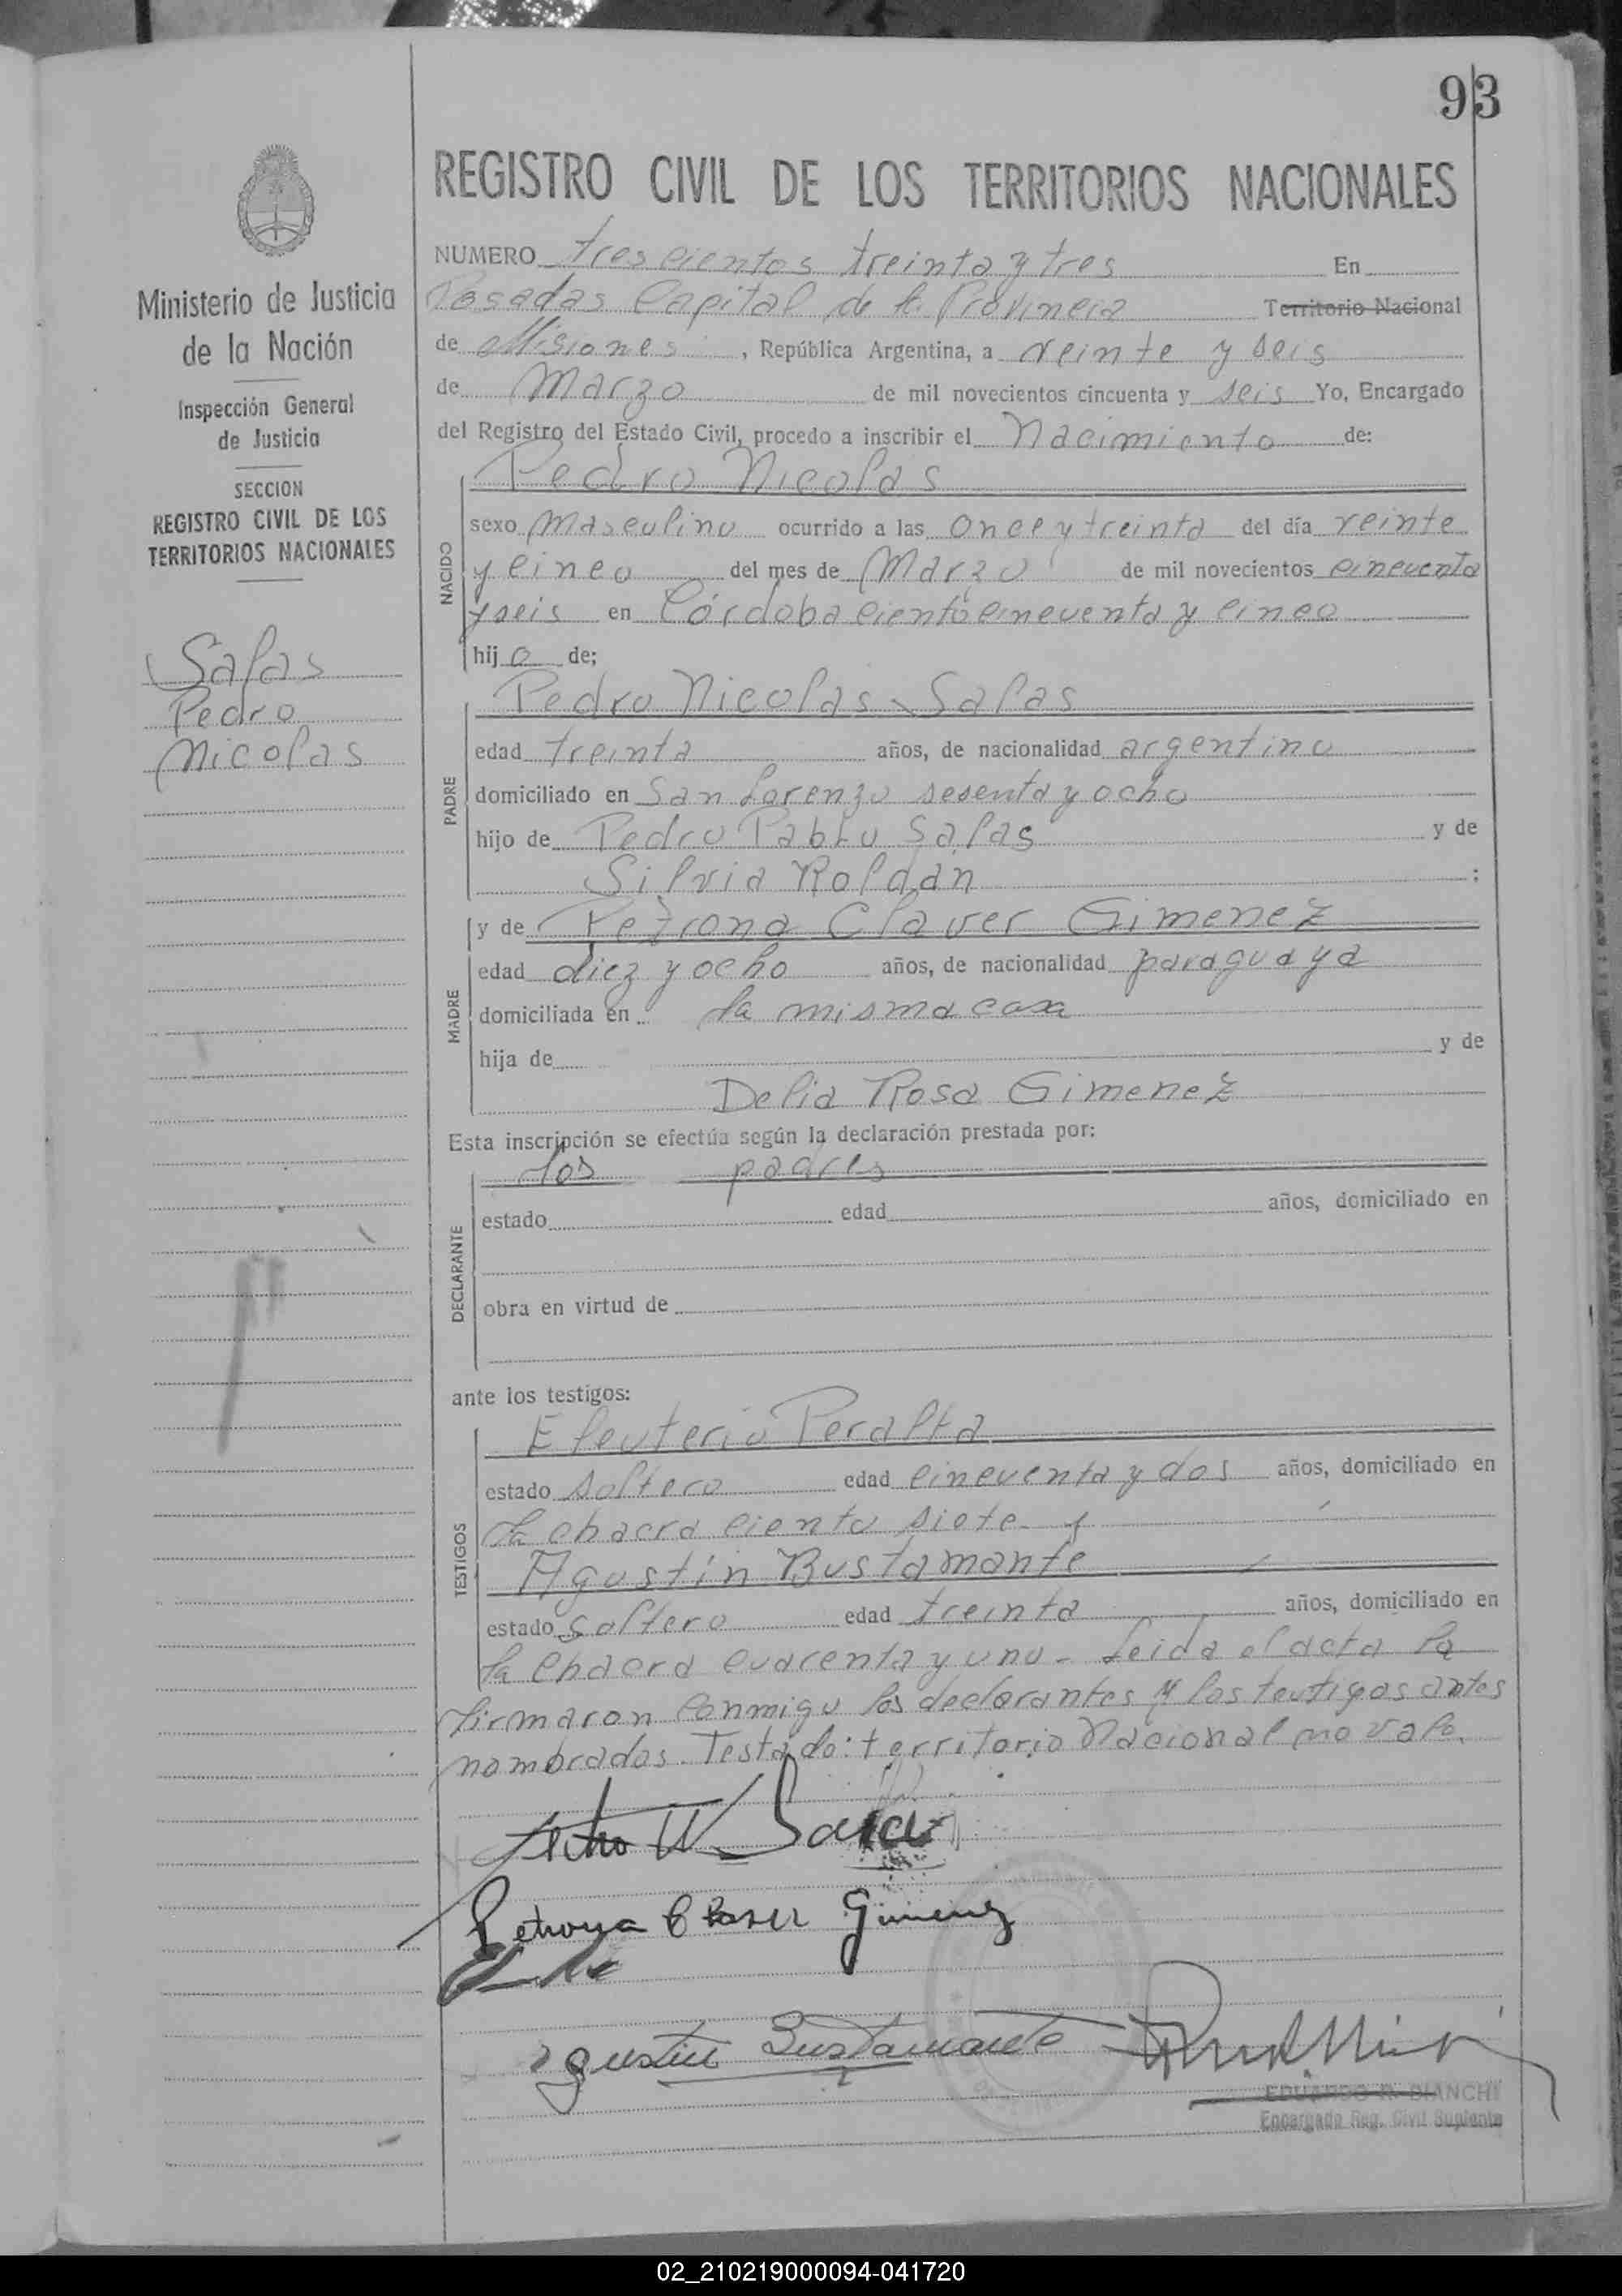 93
REGISTRO CIVIL DE LOS TERRITORIOS NACIONALES
Ministerio de Justicia
de la Nación
Inspección General
de Justicia
SECCION
REGISTRO CIVIL DE LOS
TERRITORIOS NACIONALES
Salas
Pedro
Nicolas
NUMERO trescientos treinta y tres En
Posadas Capital de la Provincia Territorio Nacional
de Misiones, República Argentina, a veinte y seis
de Marzo de mil novecientos cincuenta y seis Yo, Encargado
del Registro del Estado Civil, procedo a inscribir el Nacimiento de:
NACIDO
Pedro Nicolas
sexo Masculino ocurrido a las once y treinta del día veinte
y cinco del mes de Marzo de mil novecientos cincuenta
y seis en Córdoba ciento cincuenta y cinco
hijo de;
PADRE
Pedro Nicolas Salas
edad treinta años, de nacionalidad argentino
domiciliado en San Lorenzo sesenta y ocho
hijo de Pedro Pablo Salas y de
Silvia Roldán ;
MADRE
y de Petrona Claver Gimenez
edad diez y ocho años, de nacionalidad paraguaya
domiciliada en la misma casa
hija de y de
Delia Rosa Gimenez
Esta inscripción se efectúa según la declaración prestada por:
DECLARANTE
los padres
estado edad años, domiciliado en
obra en virtud de
ante los testigos:
TESTIGOS
Eleuterio Peralta
estado soltero edad cincuenta y dos años, domiciliado en
la chacra ciento siete y
Agustín Bustamante
estado soltero edad treinta años, domiciliado en
la chacra cuarenta y uno - Leida el acta la
firmaron conmigo los declarantes y los testigos antes
nombrados. Testado: territorio Nacional no vale.
Pedro N Salas
Petrona Claver Gimenez
Agustin Bustamante
EDUARDO R. BIANCHI
Encargado Reg. Civil Suplente
02_210219000094-041720